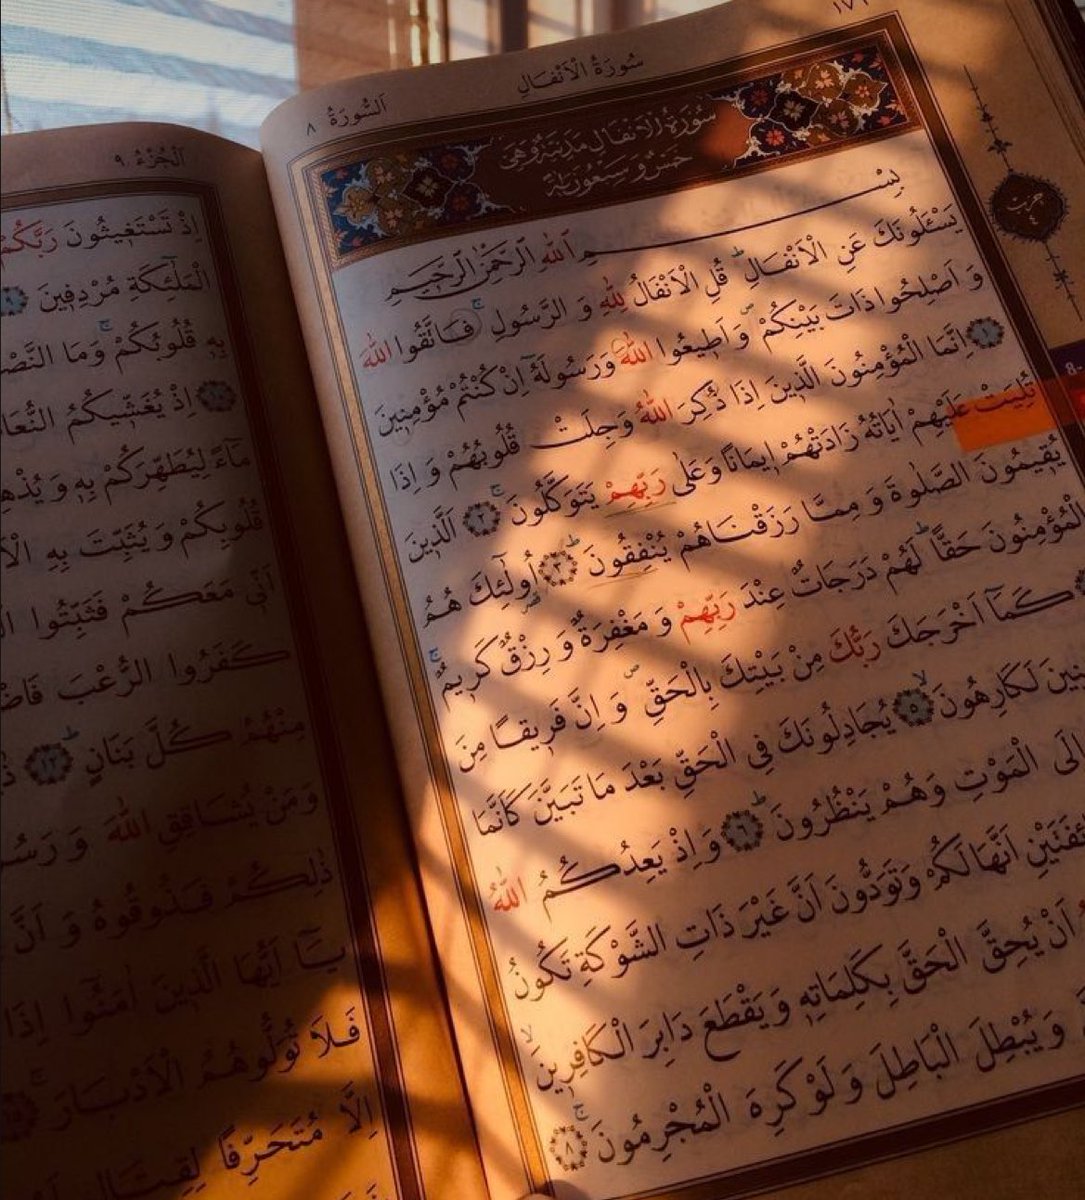 سُورَةُ الْاَنْفَالِ
اَلسُّورَةُ ٨
سُورَةُ الْاَنْفَالِ مَدَنِيَّةٌ وَهِيَ
خَمْسٌ وَسَبْعُونَ اٰيَةً
حزب
بِسْمِ اللّٰهِ الرَّحْمٰنِ الرَّحِيمِ
يَسْـَٔلُونَكَ عَنِ الْاَنْفَالِ قُلِ الْاَنْفَالُ لِلّٰهِ وَ الرَّسُولِ فَاتَّقُوا اللّٰهَ
وَ اَصْلِحُوا ذَاتَ بَيْنِكُمْ وَ اَطِيعُوا اللّٰهَ وَرَسُولَهُٓ اِنْ كُنْتُمْ مُؤْمِنِينَ
١ اِنَّمَا الْمُؤْمِنُونَ الَّذِينَ اِذَا ذُكِرَ اللّٰهُ وَجِلَتْ قُلُوبُهُمْ وَ اِذَا
تُلِيَتْ عَلَيْهِمْ اٰيَاتُهُ زَادَتْهُمْ اِيمَانًا وَعَلٰى رَبِّهِمْ يَتَوَكَّلُونَ ٢ اَلَّذِينَ
يُقِيمُونَ الصَّلٰوةَ وَ مِمَّا رَزَقْنَاهُمْ يُنْفِقُونَ ٣ اُولٰٓئِكَ هُمُ
الْمُؤْمِنُونَ حَقًّا لَهُمْ دَرَجَاتٌ عِنْدَ رَبِّهِمْ وَ مَغْفِرَةٌ وَ رِزْقٌ كَرِيمٌ
كَمَٓا اَخْرَجَكَ رَبُّكَ مِنْ بَيْتِكَ بِالْحَقِّ وَ اِنَّ فَرِيقًا مِنَ
لَكَارِهُونَ ٥ يُجَادِلُونَكَ فِي الْحَقِّ بَعْدَ مَا تَبَيَّنَ كَاَنَّمَا
اِلَى الْمَوْتِ وَهُمْ يَنْظُرُونَ ٦ وَاِذْ يَعِدُكُمُ اللّٰهُ
اَنَّهَا لَكُمْ وَتَوَدُّونَ اَنَّ غَيْرَ ذَاتِ الشَّوْكَةِ تَكُونُ
اَنْ يُحِقَّ الْحَقَّ بِكَلِمَاتِهِ وَيَقْطَعَ دَابِرَ الْكَافِرِينَ
وَيُبْطِلَ الْبَاطِلَ وَ لَوْ كَرِهَ الْمُجْرِمُونَ ٨
اَلْجُزْءُ ٩
اِذْ تَسْتَغِيثُونَ رَبَّكُمْ
الْمَلٰٓئِكَةِ مُرْدِفِينَ ٩
بِهِ قُلُوبُكُمْ وَمَا
١٠ اِذْ يُغَشِّيكُمُ
مَٓاءً لِيُطَهِّرَكُمْ بِهِ وَ
قُلُوبِكُمْ وَ يُثَبِّتَ بِهِ
اَنِّي مَعَكُمْ فَثَبِّتُوا
كَفَرُوا الرُّعْبَ
مِنْهُمْ كُلَّ بَنَانٍ ١٢
وَمَنْ يُشَاقِقِ اللّٰهَ وَ
ذٰلِكُمْ فَذُوقُوهُ وَ اَنَّ
يَٓا اَيُّهَا الَّذِينَ اٰمَنُٓوا اِذَا
فَلَا تُوَلُّوهُمُ الْاَدْبَارَ
اِلَّا مُتَحَرِّفًا لِقِتَالٍ